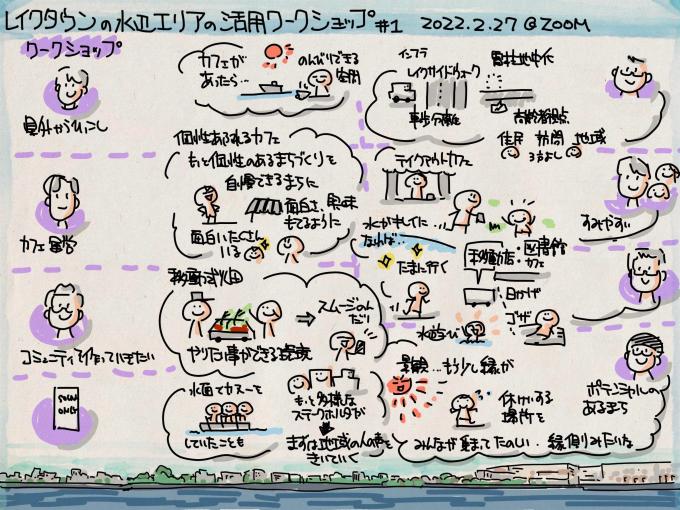 レイクタウンの水辺エリアの活用ワークショップ#1 2022.2.27 @ZOOM
ワークショップ
県外からひっこし
カフェが
あったら…
のんびりできる
空間
インフラ
レイクサイドウォーク
電柱地中化
車歩分離
高齢者拠点
住民 訪問 地域
3方よし
カフェ運営
個性あふれるカフェ
もっと個性のあるまちづくりを
自慢できるまちに
面白さ、興味
もてるように
面白い人たくさん
いる
テイクアウトカフェ
水がキレイに…
なれば…
たまに行く
移動店・図書館
・カフェ
日かげ
ゴザ
水遊び
すみやすい
コミュニティを作っていきたい
移動式
やりたい事ができる環境
⇒ スムージーのんだり
SOUND
ONLY
水面でカヌーを
していたことも
もっと多様な
ステークホルダーが
まずは地域の人の声を
きいていく
景観…もう少し緑が
休けいする
場所を
みんなが集まってたのしい・縁側みたいな
ポテンシャルの
あるまち